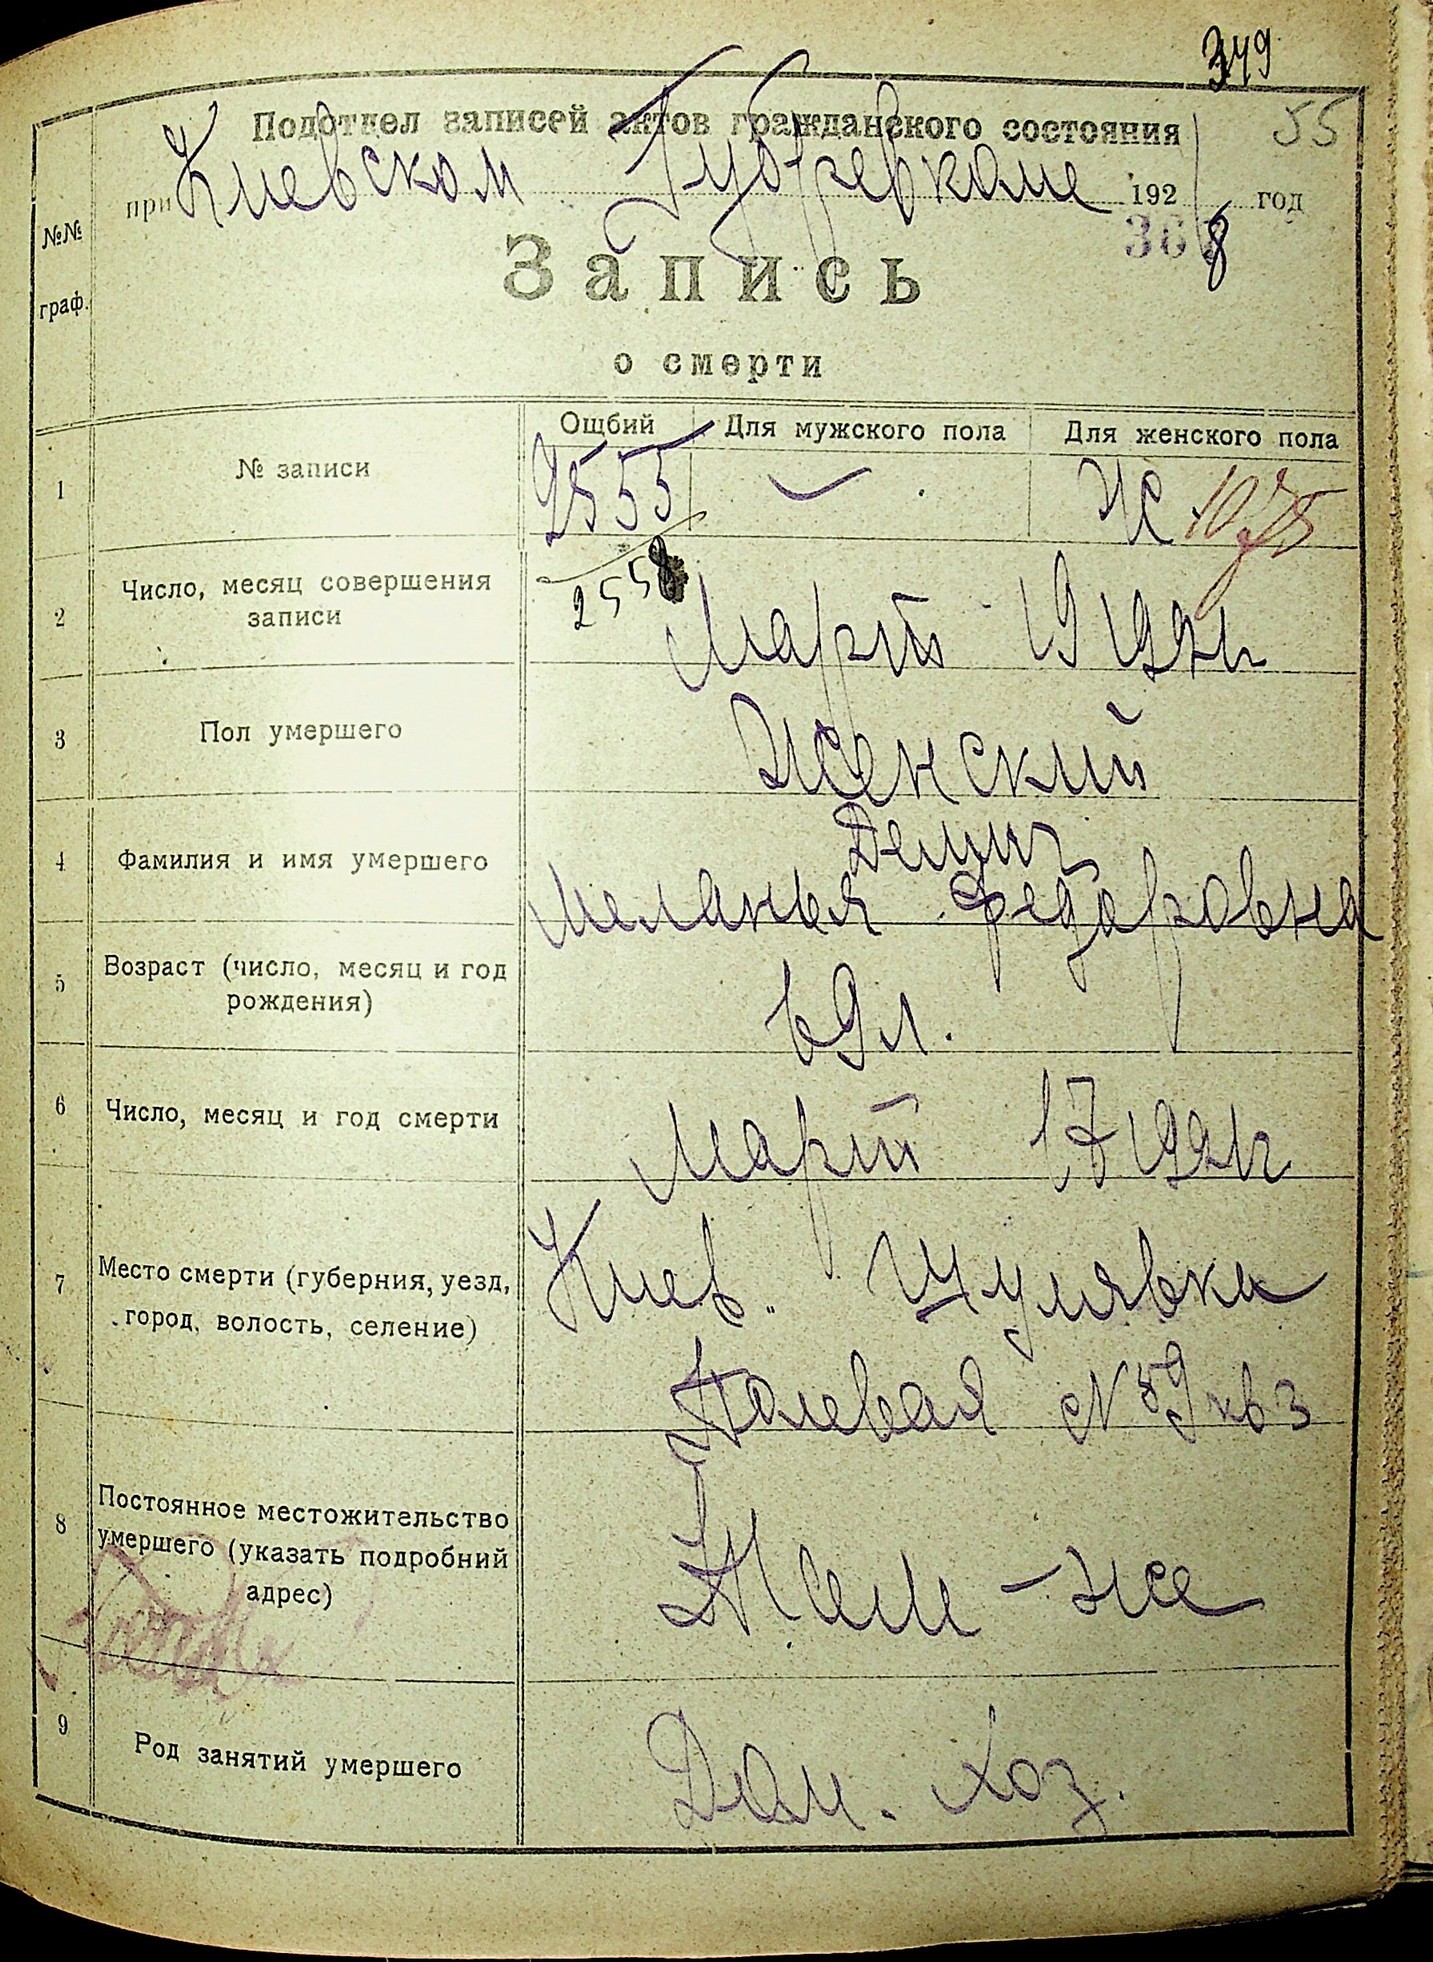 349
55
Подотдел записей актов гражданского состояния
при Киевском Губревкоме 1921 год
368
Запись
о смерти
№№ граф.
Ощбий Для мужского пола Для женского пола
1 № записи 2555 — Ж 1075
2558
2 Число, месяц совершения
записи
Март 19 1921 г
3 Пол умершего Женский
4 Фамилия и имя умершего
Меланья Федоровна
5 Возраст (число, месяц и год
рождения)
69 л.
6 Число, месяц и год смерти Март 17 1921 г
7 Место смерти (губерния, уезд,
город, волость, селение)
Киев. Шулявка
Полевая № 59 кв 3
8 Постоянное местожительство
умершего (указать подробний
адрес)
Там-же
9 Род занятий умершего Дом. Хоз.